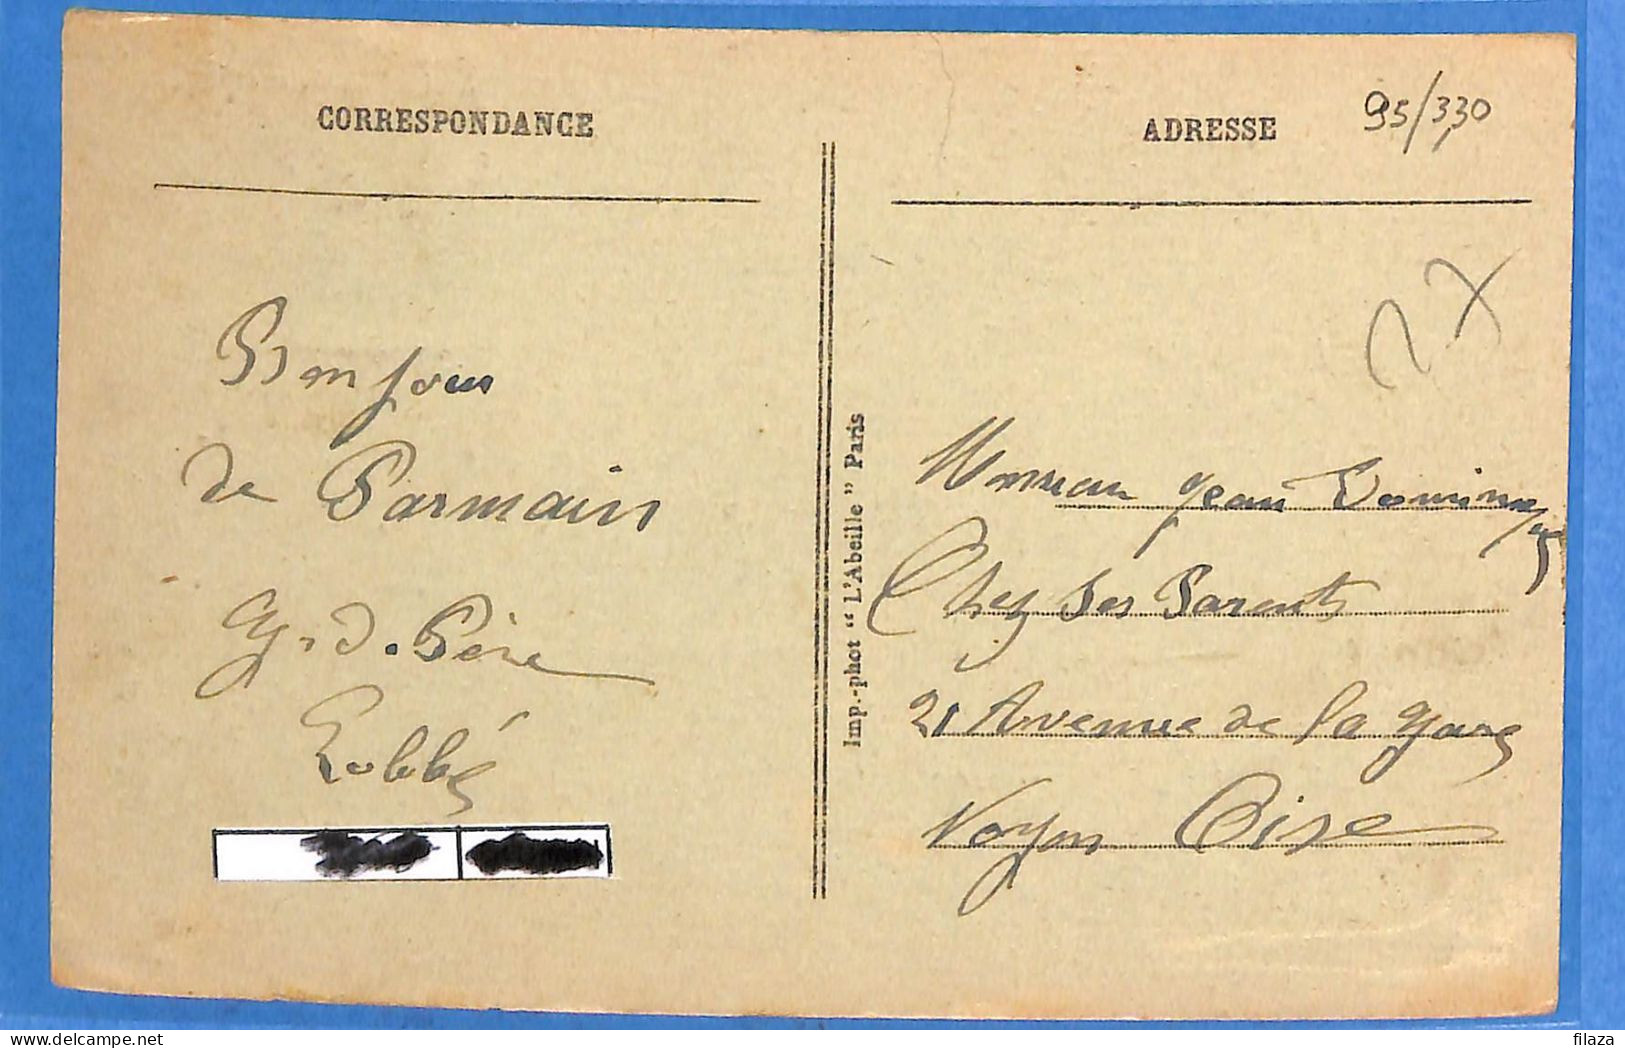 CORRESPONDANCE
Bonjour
de Parmain
G. d. Père
Lobbé
Imp.-phot “ L'Abeille ” Paris
ADRESSE
95/330
Monsieur Jean
Chez Ses Parents
21 Avenue de la Gare
Noyon Oise
filaza